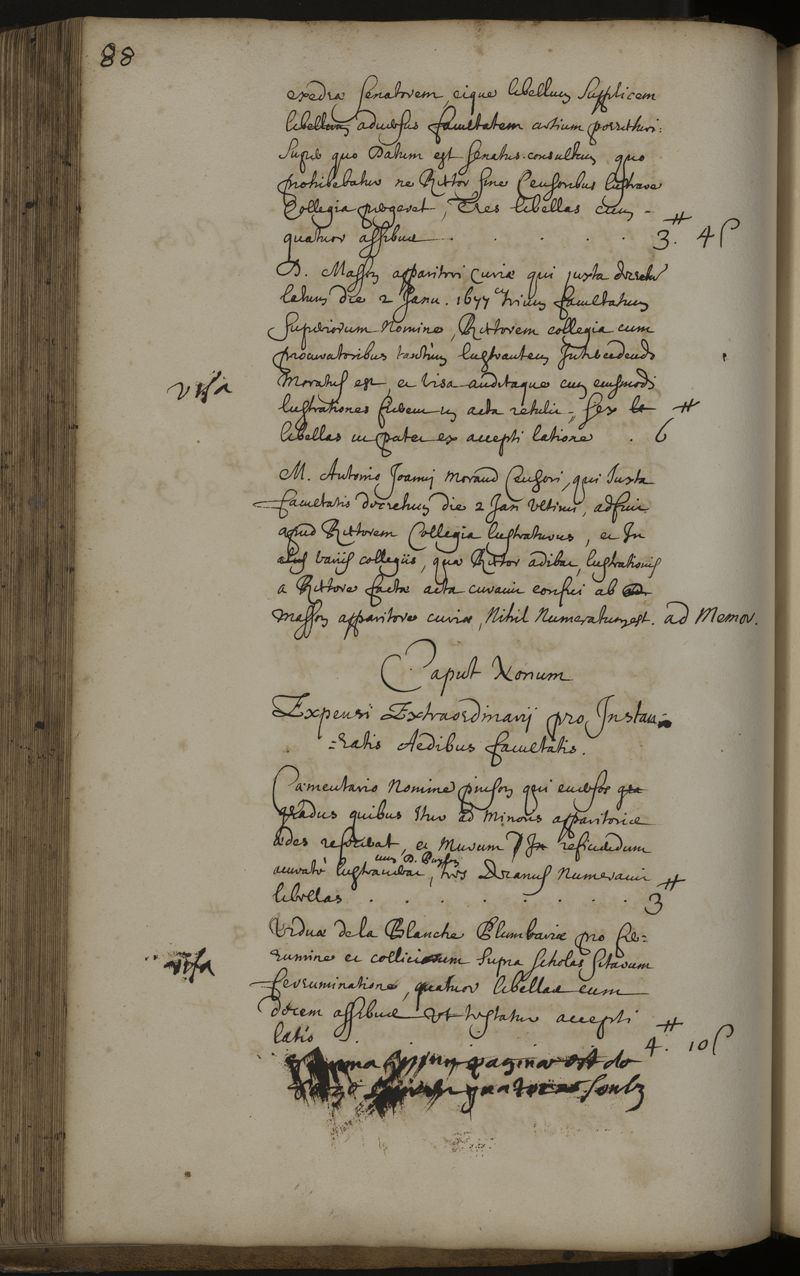 88
exedra senatorem, eique libellum supplicem
libellum adversus facultatem artium porrecturi:
super quo Datum est senatus-consultum quo
prohibebatur ne Rector sine Censoribus lustrare
Collegia pergeret, Tres libellas cum
quatuor assibus . . . . . 3.# 4 s
D. Masson apparitori curiæ qui juxta decretum
latum die 2 Janu. 1677 trium facultatum
superiorum nomine, Rectorem collegia cum
procuratoribus tantum lustrantem Intercedendo
visa
Moratus est, et visa auditaque cum eiusmodi
lustrationes fierent in acta retulit, sex
libellas ut patet ex accepti latione . 6 #
M. Antonio Joanni Morand Censori, qui Juxta
facultatis decretum die 2 Jan ultimi, adfuit
apud Rectorem Collegia lustraturus, et In
variis collegiis, quæ Rector adibat, lustrationis
a Rectore factæ acta curavit confici ab
Masson apparitore curiæ, Nihil Numeratum est. ad Memor.
Caput Nonum
Expensi Extraordinarij pro Instau-
-ratis Aedibus facultatis.
Cæmentario Nomine pinson qui
gradus quibus Itur ad Minoris apparitoris
ædes reficiebat, et Murum In reficiendum
cum D.
accurate lustrandum, tres Decanus Numeravit
libellas . . . . . . . 3 #
Viduæ de la Blanche Plumbariæ pro fer-
rumine et colliciarum supra scholas sitarum
visa
ferruminatione, quatuor libellas cum
decem assibus ut testatur accepti
latio . . . . 4.# 10 s
pagina est de
soulz